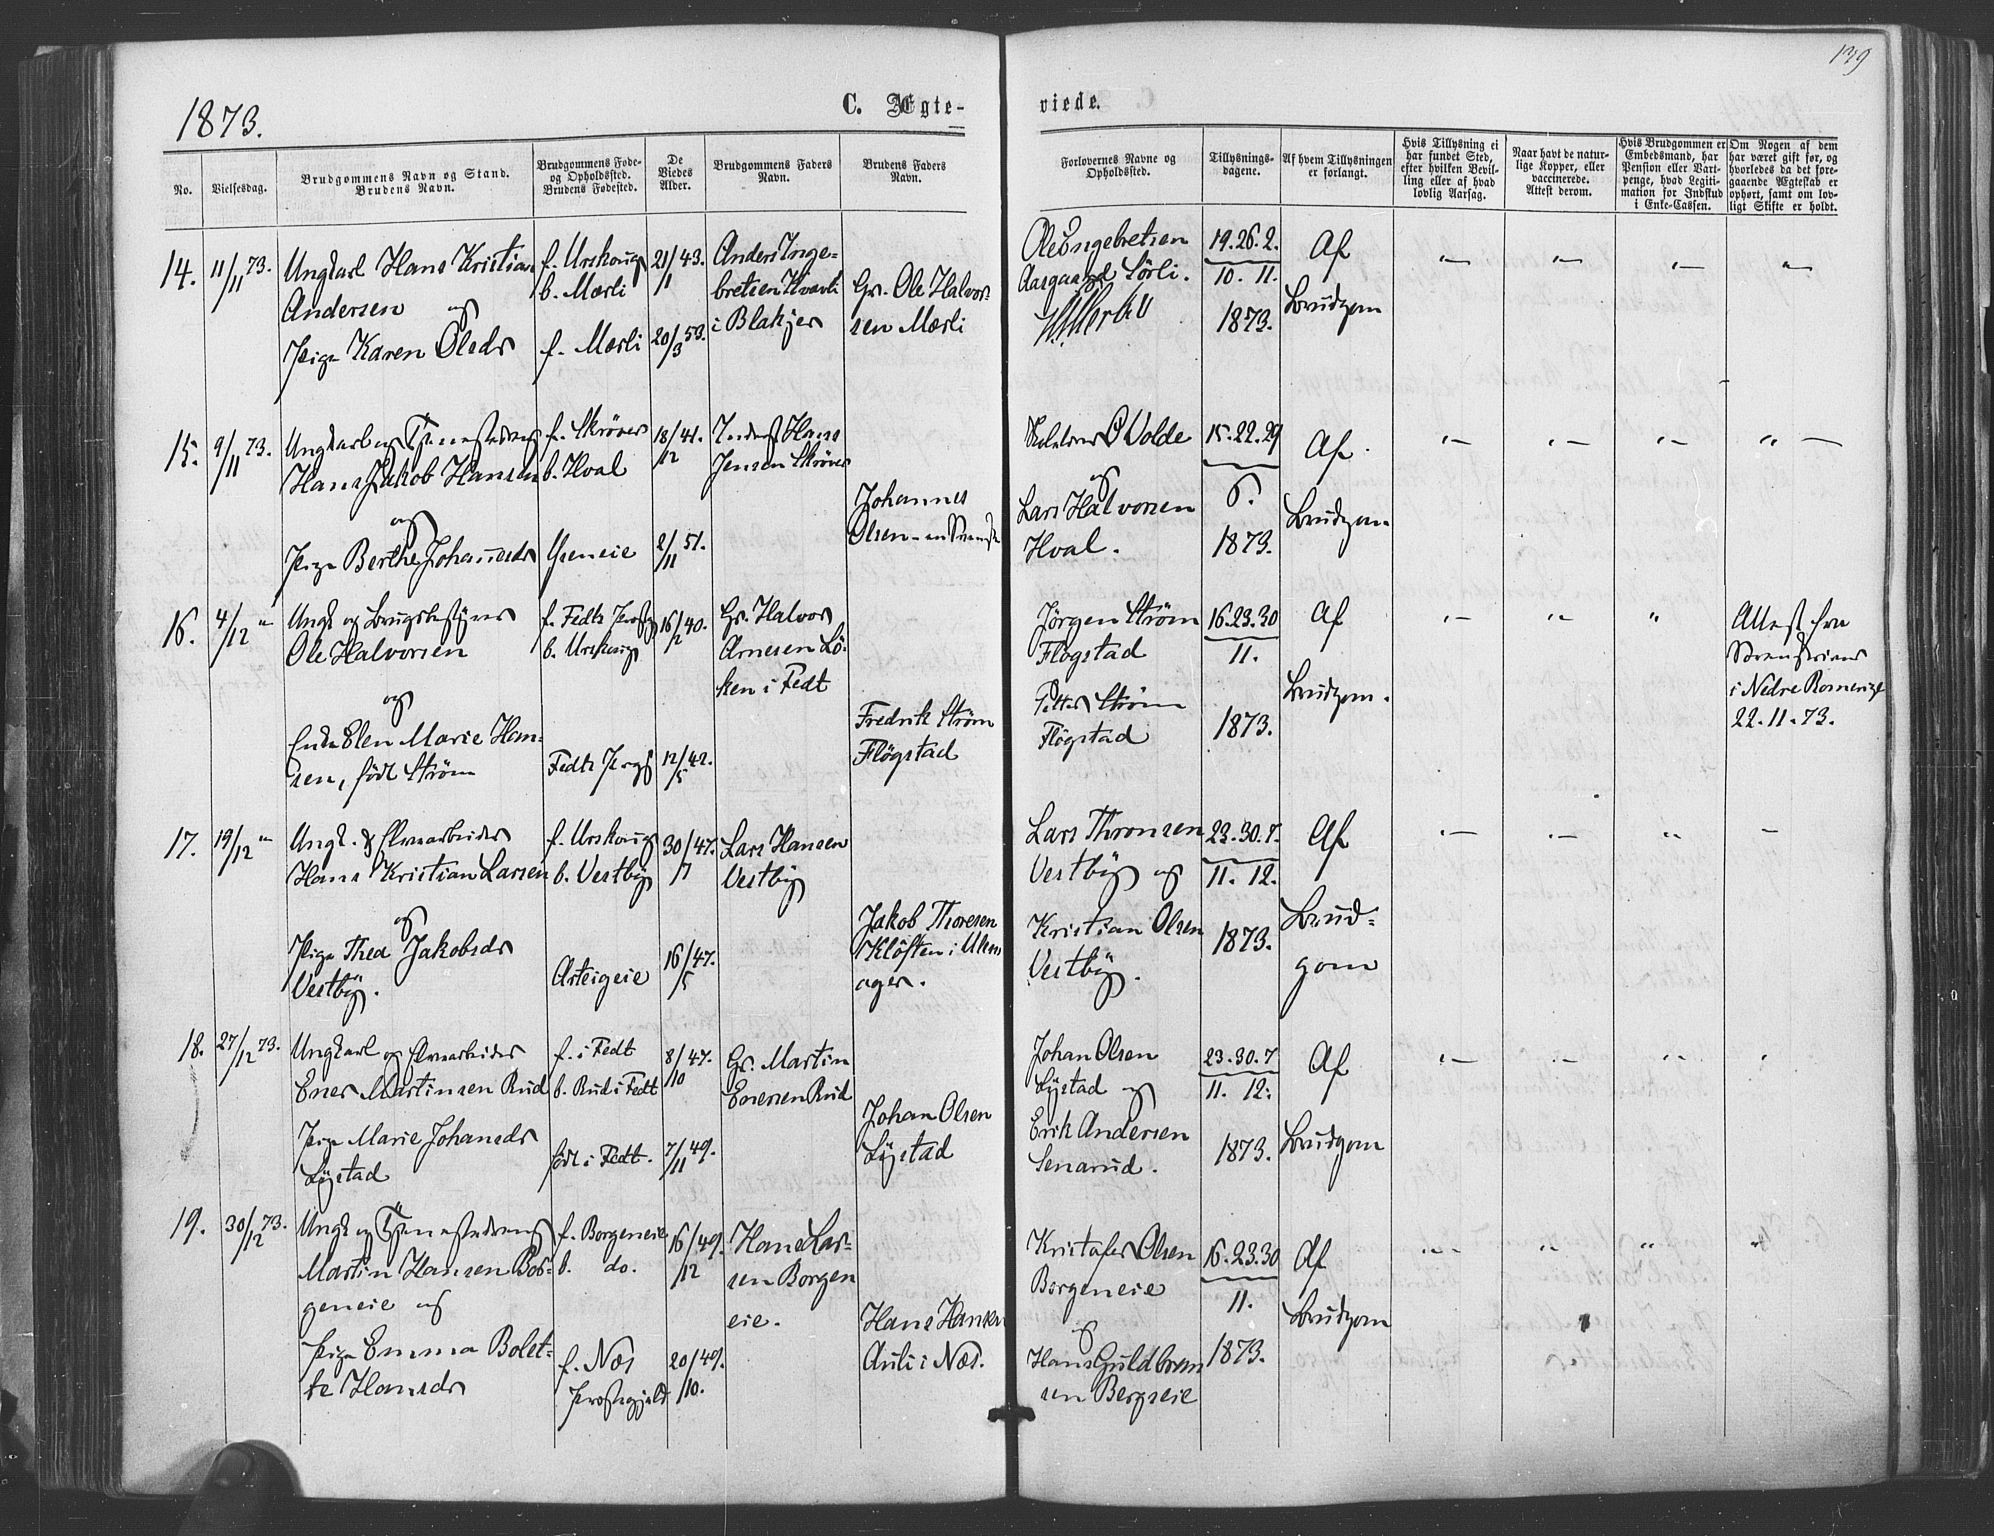 139
1873.
C. Ægte-
viede.
No.
Vielsesdag.
Brudgommens Navn og Stand.
Brudens Navn.
Brudgommens Føde-
og Opholdssted.
Brudens Fødested.
De
Viedes
Alder.
Brudgommens Faders
Navn.
Brudens Faders
Navn.
Forlovernes Navne og
Opholdssted.
Tillysnings-
dagene.
Af hvem Tillysningen
er forlangt.
Hvis Tillysning ei
har fundet Sted,
efter hvilken Bevil-
ling eller af hvad
lovlig Aarsag.
Naar havt de natur-
lige Kopper, eller
vaccinerede.
Attest derom.
Hvis Brudgommen er
Embedsmand, har
Pension eller Vart-
penge, hvad Legiti-
mation for Indskud
i Enke-Cassen.
Om Nogen af dem
har været gift før, og
hvorledes da det fore-
gaaende Ægteskab er
ophørt, samt om lov-
ligt Skifte er holdt.
14.
11/11 73.
Ungkarl Hans Kristian
Andersen og
Pige Karen Olsdr
f. Urskoug
b. Mærli
f. Mærli
21/1 43.
20/3 53.
Anders Inge-
bretsen
i Blakjer
Gr. Ole Halvor-
sen Mærli
Ole Engebretsen
Aasgaard Sörli.
19. 26. 2.
10. 11.
1873.
Af
Brudgom
15.
9/11 73.
Ungkarl og Tjenestedreng
Hans Jakob Hansen
og
Pige Berthe Johannesdr
f. Skröver
b. Hval
18/12 41.
2/11 51.
Inderst Hans
Jensen Skröver
Johannes
Olsen
O Volde
og
Lars Halvorsen
Hval.
15. 22. 29
1873.
Af
Brudgom.
16.
4/12 "
Ungk og Brugsbestyrer
Ole Halvorsen
og
Enke Elen Marie Han-
sen, född Ström
f. Fedts Prgj
b. Urskoug
Fedts Prgj
16/2 40.
12/5 42.
Gr. Halvor
Arnesen Lö-
ken i Fedt
Fredrik Ström
Flögstad
Jörgen Ström
Flögstad
Petter Ström
Flögstad
16. 23. 30
11.
1873.
Af
Brudgom.
Attest fra
i Nedre Romerige
22-11-73.
17.
19/12 "
Ungk. &
Hans Kristian Larsen
og
Pige Thea Jakobsdr
Vestby.
f. Urskoug
b. Vestby
Asteigeie
30/7 47.
16/5 47.
Lars Hansen
Vestby
Jakob Thoresen
Klöften i Ullens-
ager.
Lars Thronsen
Vestby og
Kristian Olsen
Vestby.
23. 30. 7.
11. 12.
1873.
Af
Brud-
gom
18.
27/12 73.
Ungkarl og
Ener Martinsen Rud
Pige Marie Johansdr
Lystad
f. i Fedt
b. Rud i Fedt
född i Fedt.
8/10 47.
7/11 49.
Gr. Martin
Enersen Rud
Johan Olsen
Lystad
Johan Olsen
Lystad og
Erik Andersen
Senarud.
23. 30. 7
11. 12.
1873.
Af
Brudgom
19.
30/12 73.
Ungk og Tjenestedreng
Martin Hansen Bor-
geneie og
Pige Emma Bolet-
te Hansdr
f. Borgeneie
b. do.
f. Næs
Prestegjeld
16/12 49.
20/10. 49.
Hans Lar-
sen Borgen
eie.
Hans Hansen
Auli i Næs.
Kristofer Olsen
Borgeneie
&
Hans Guldbrand-
sen Bergseie
16. 23. 30
11.
1873.
Af
Brudgom